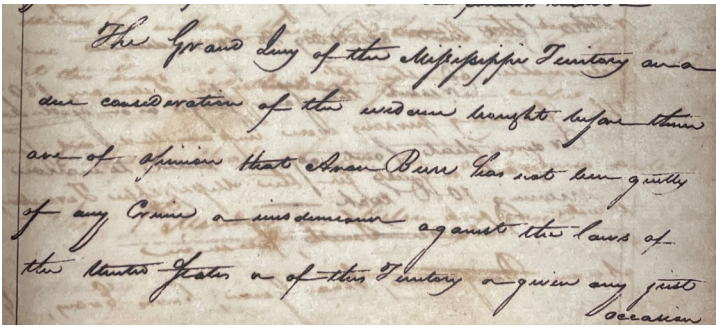 The Grand Jury of the Mississippi Territory on a
due consideration of the evidence brought before them
are of opinion that Aaron Burr has not been guilty
of any Crime or misdemeanor against the laws of
the United States or of this Territory or given any just
occasion